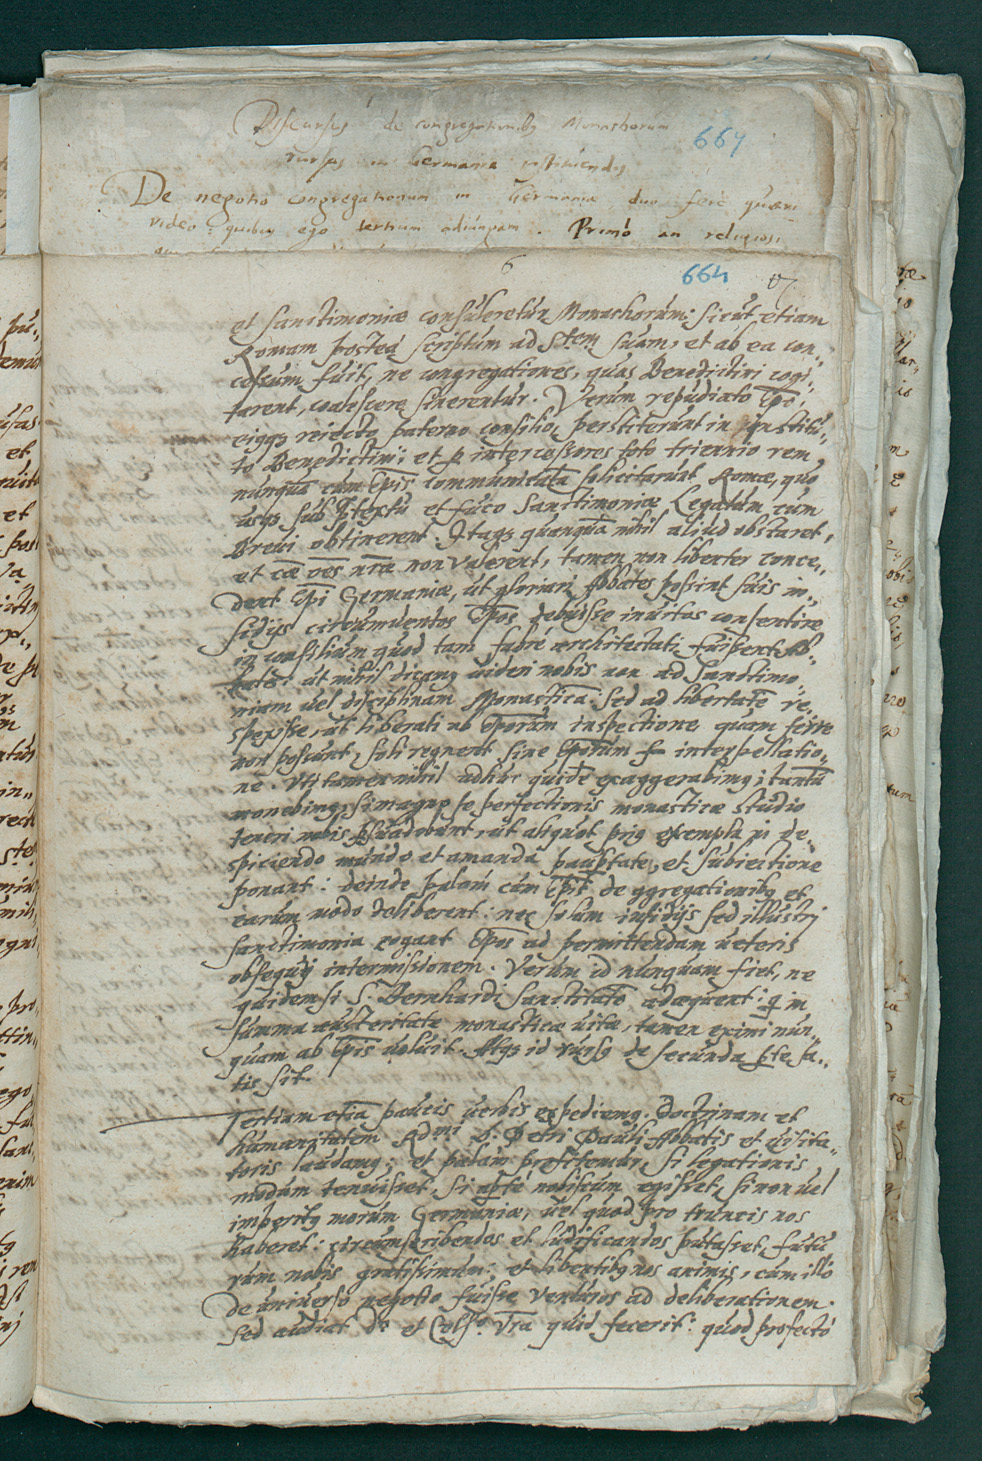 Discursus de congregationibq Monachorum
667
rursus in Germania instituendis
De negotio congregationum in Germania, duo ferè quæri
video: quibus ego tertium adiungam. Primò an religiosi
6
664
et sanctimoniæ consuleretur Monachorum: sicut etiam
Romam posteà scriptum ad Stem suam, et ab ea con„
cessum fuit, ne congregationes, quas Benedictini cogi„
tarent, coalescere sinerentur. Verum repudiato Epo,
eiqq reiecto paterno consilio, perstiterunt in instituᵘ„
to Benedictini, et p intercessores toto triennio rem
nunquā cum Epis communicatā solicitarunt Romæ, quo
usqq sub ptextu et fuco Sanctimoniæ Legatum cum
Breui obtinerent. Itaqq quanquā nihil aliud obstaret,
et cæ res nræ non valerent, tamen non libenter conce„
dent Epi Germaniæ, ut gloriari Abbates possint suis in„
sidijs circumuentos Epos debuisse inuitos consentire
in consilium quod tam fabrè architectati fuissent Ab„
bates: ut nihil dicamq uideri nobis non ad Sanctimo„
niam uel disciplinam Monasticā: sed ad libertatē re„
spexisse, ut liberati ab Eporum inspectione quam ferre
non possunt, soli regnent sine Eporum interpellatio„
ne. Uti tamen nihil adhuc quidē exaggerabimq; tantū
monebimq, si magno se perfectionis monasticæ studio
teneri nobis psuadebunt, ut aliquot priq exempla in de„
spiciendo mundo et amanda paupertate, et subiectione
ponant: deinde palàm cum Epis de ggregationibq et
earum modo deliberent: nec solum insidijs sed illustri
sanctimonia rogant Epos ad permittendam ueteris
obsequij intermissionem. Verùm id nunquam fiet, ne
quidem si S. Bernhardi sanctitatē adæquent: q in
summa austeritate monasticæ uitæ, tamen eximi nun„
quam ab Epis uoluit. Atqq id rursq de secunda pte sa„
tis sit.
Tertium etiā paucis uerbis expediemq. Doctrinam et
humanitatem Rdmi D. Petri Pauli Abbatis et visita„
toris laudamq: et palàm profitemur, si legationis
modum tenuisset, si aptè nobiscum egisset, si non uel
imperitq morum Germaniæ, uel quod pro truncis nos
haberet: circumscribendos et ludificandos putasset, futu
rum nobis gratissimum: et libentibq nos animis, cum illo
de uniuerso negotio fuisse venturos ad deliberationem.
Sed audiat Do. et Celso. Vra quid fecerit: quod profectò